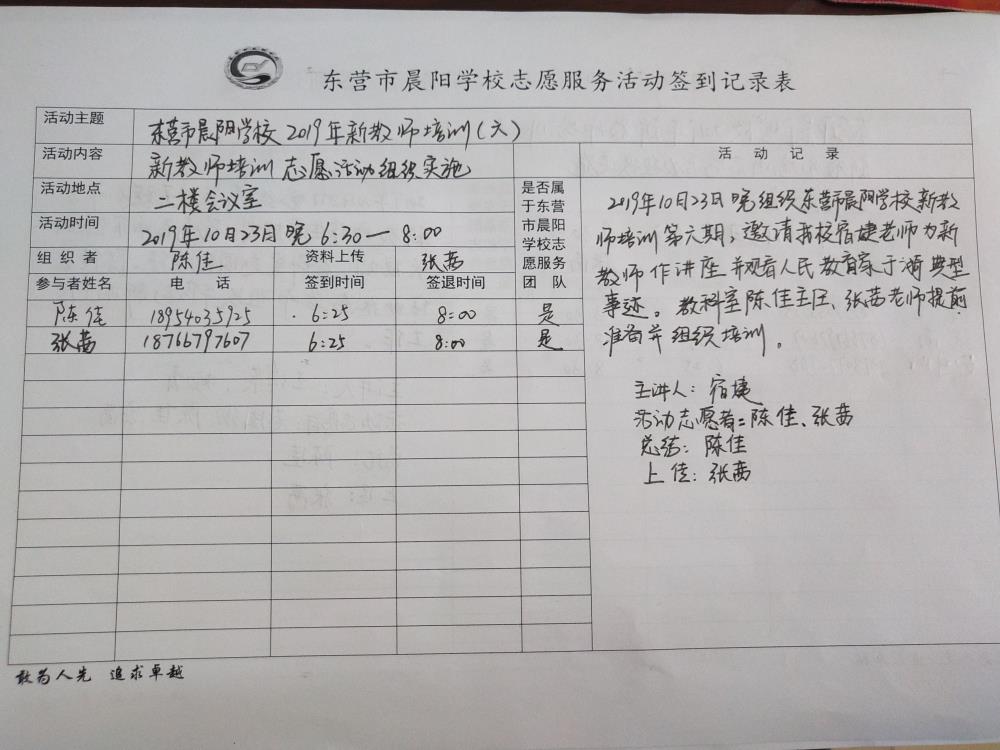 东营市晨阳学校志愿服务活动签到记录表
活动主题 东营市晨阳学校2019年新教师培训(六)
活动内容 新教师培训志愿活动组织实施
活动地点 二楼会议室
活动时间 2019年10月23日晚6:30—8:00
组织者 陈佳 资料上传 张茜
参与者姓名 电话 签到时间 签退时间
是否属
于东营
市晨阳
学校志
愿服务
团队
陈佳 18954035925 6:25 8:00 是
张茜 18766797607 6:25 8:00 是
活动记录
2019年10月23日晚组织东营市晨阳学校新教
师培训第六期,邀请我校宿婕老师为新
教师作讲座并观看人民教育家于漪典型
事迹。教科室陈佳主任、张茜老师提前
准备并组织培训。
主讲人:宿婕
活动志愿者:陈佳、张茜
总结:陈佳
上传:张茜
敢为人先 追求卓越